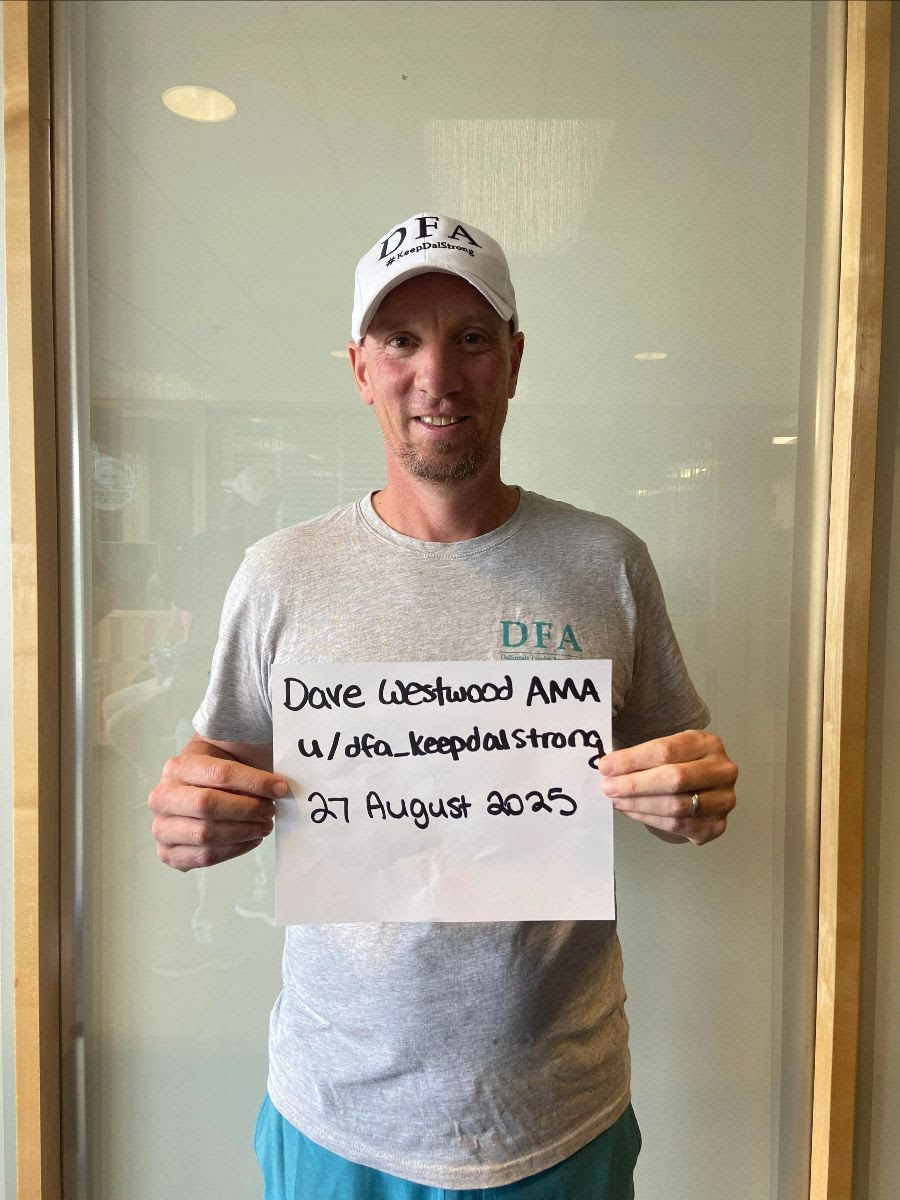 DFA
#KeepDalStrong
DFA
Dave Westwood AMA
u/dfa_keepdalstrong
27 August 2025